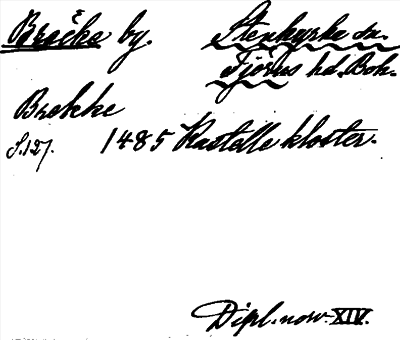 Bräcke by. Stenkyrka sn.
Tjörns hd. Boh.
Brekke
S. 127. 1485 Kastelle kloster.
Dipl. norv. XIV.